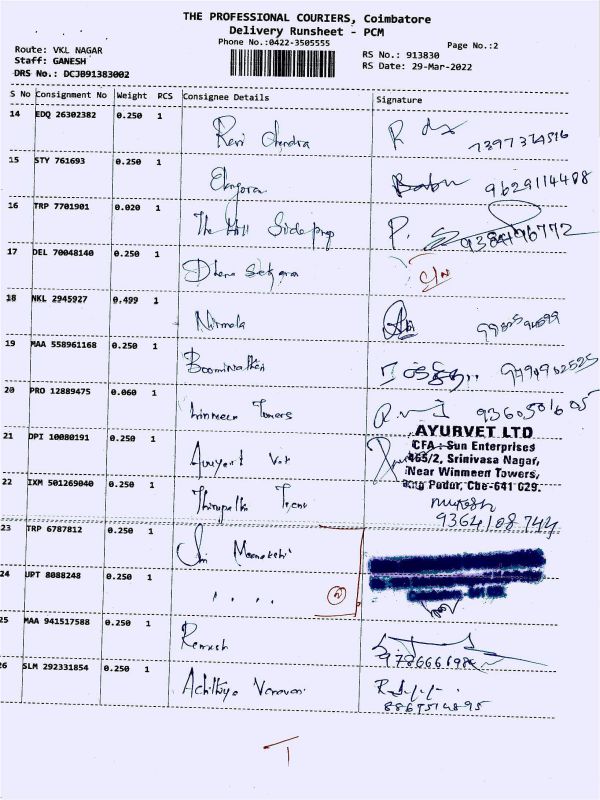 THE PROFESSIONAL COURIERS, Coimbatore
Delivery Runsheet - PCM
Phone No.:0422-3505555
Page No.:2
Route: VKL NAGAR
Staff: GANESH
DRS No.: DCJB91383002
RS No.: 913830
RS Date: 29-Mar-2022
S No Consignment No Weight PCS Consignee Details Signature
14 EDQ 26302382 0.250 1
Ravi Chandra
15 STY 761693 0.250 1
Babu 9629114488
16 TRP 7701901 0.020 1
The Hill Side prop P.
17 DEL 70048140 0.250 1
Dhana Sekaran C/N
18 NKL 2945927 0.499 1
Nirmala
19 MAA 558961168 0.250 1
20 PRO 12889475 0.060 1
Winmeen Towers
21 DPI 10080191 0.250 1
AYURVET LTD
CFA : Sun Enterprises
465/2, Srinivasa Nagar,
Near Winmeen Towers,
Kng Pudur, Cbe-641 029.
22 IXM 501269040 0.250 1
9364108744
23 TRP 6787812 0.250 1
Sri Meenakshi
24 UPT 8088248 0.250 1
" " " "
25 MAA 941517588 0.250 1
Ramesh
26 SLM 292331854 0.250 1